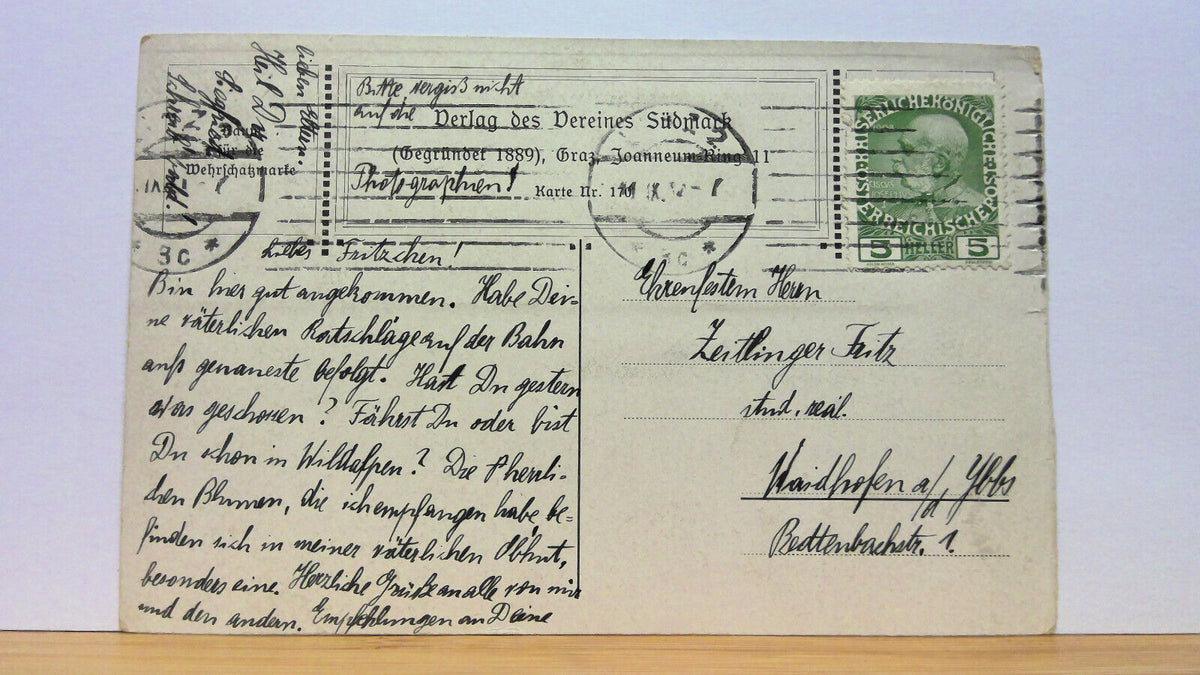 Bitte vergiß nicht
auf die
Photographien!
Verlag des Vereines Südmark
(Gegründet 1889), Graz, Joanneum-Ring 11
Karte Nr. 170
Raum
für die
Wehrschatzmarke
KAISERLICHE KÖNIGLICHE POST
ÖSTERREICHISCHE
5 HELLER 5
3c
3c
Liebes Fritzchen!
Bin hier gut angekommen. Habe Dei-
ne väterlichen Ratschläge auf der Bahn
aufs genaueste befolgt. Hast Du gestern
was geschossen? Fährst Du oder bist
Du schon in Wildalpen? Die herrli-
chen Blumen, die ich empfangen habe be-
finden sich in meiner väterlichen Obhut,
besonders eine. Herzliche Grüße an alle von mir
und den andern. Empfehlungen an Deine
lieben Eltern.
Heil
Schreib bald!
Ehrenfestem Herrn
Zeitlinger Fritz
stud. real.
Waidhofen a/d Ybbs
Bedtenbachstr. 1.